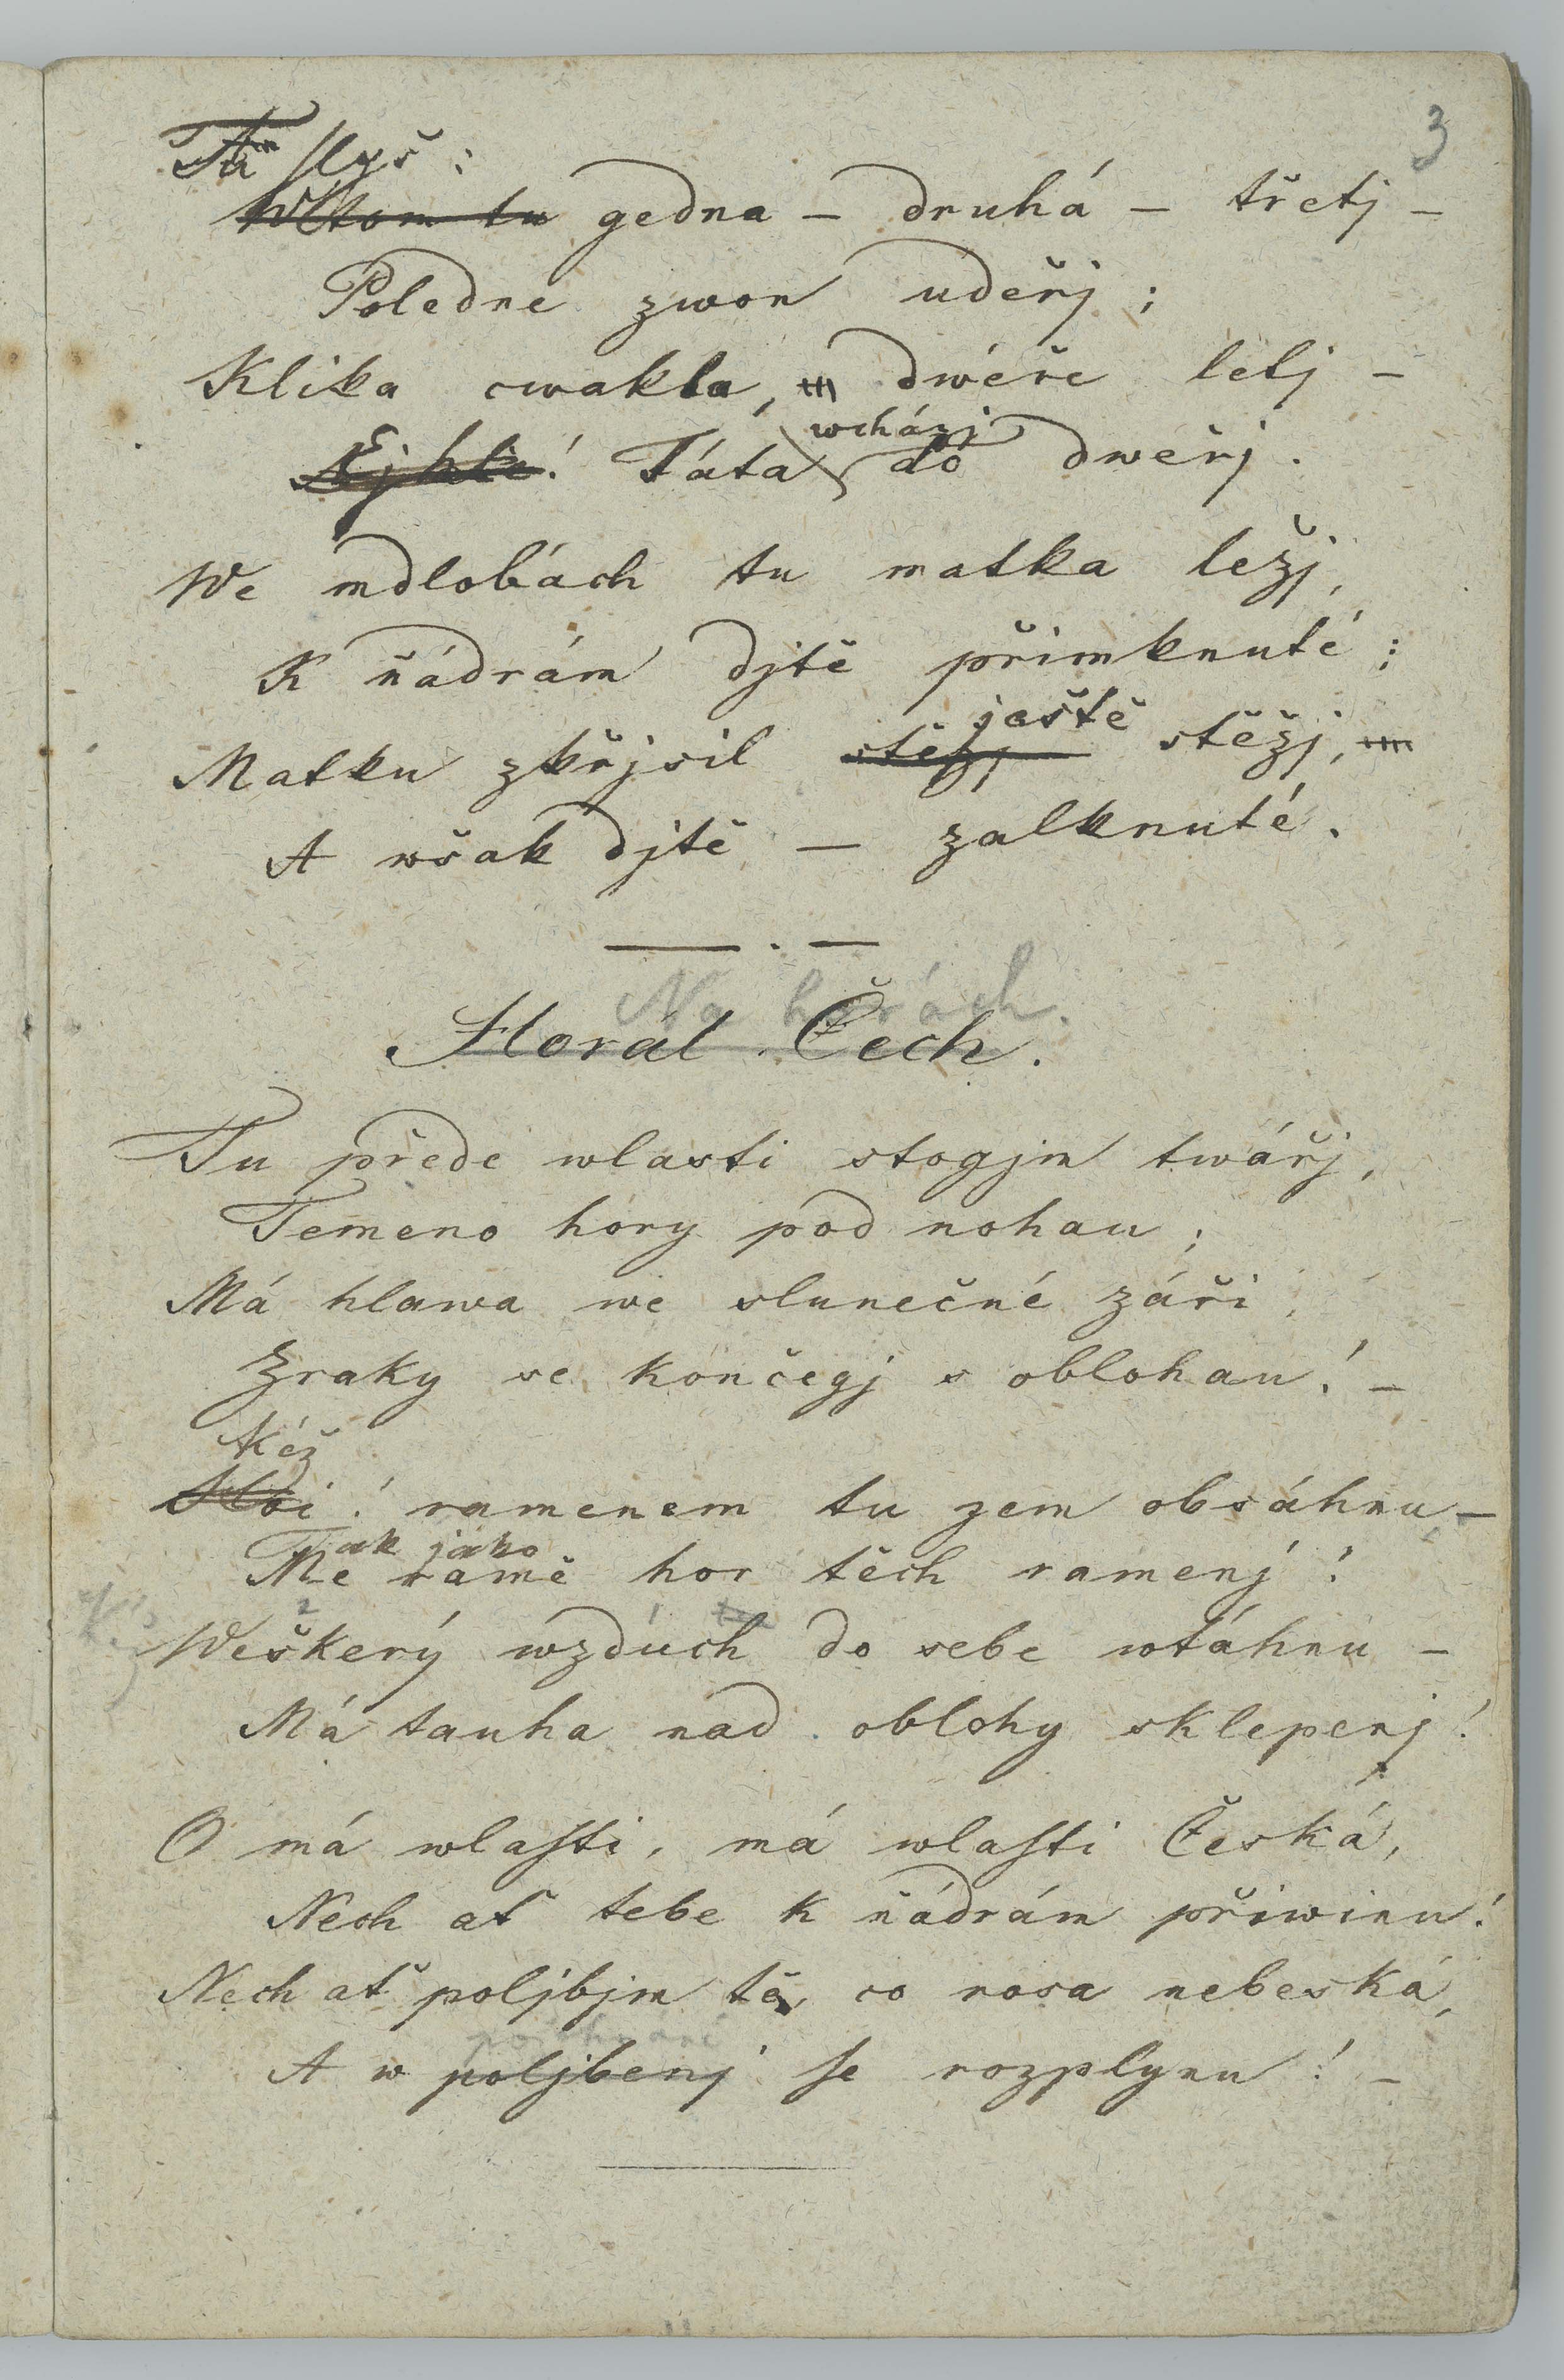 3
slyš:
Wtom tu gedna – druhá – třetj –
Poledne zwon udeřj;
Klika cwakla, dwéře letj –
wcházj
Ejhle! Táta do dweřj.
We mdlobách tu matka ležj,
K ňádrám djtě přimknuté;
ještě
Matku zkřjsil stěžj stěžj,
A wšak djtě – zalknuté.
Na horách.
Horal Čech.
Tu přede wlasti stogjm twářj,
Temeno hory pod nohau;
Má hlawa we slunečné záři,
Zraky se končegj s oblohau! –
Kéž
Hoi! ramenem tu zem obsáhnu –
Tak jako
Mé rámě hor těch ramenj!
Weškerý wzduch do sebe wtáhnu –
Má tauha nad oblohy sklepenj!
O má wlasti, má wlasti Česká,
Nech ať tebe k ňádrám přiwinu!
Nech ať poljbjm tě, co rosa nebeská,
A w poljbenj se rozplynu! –